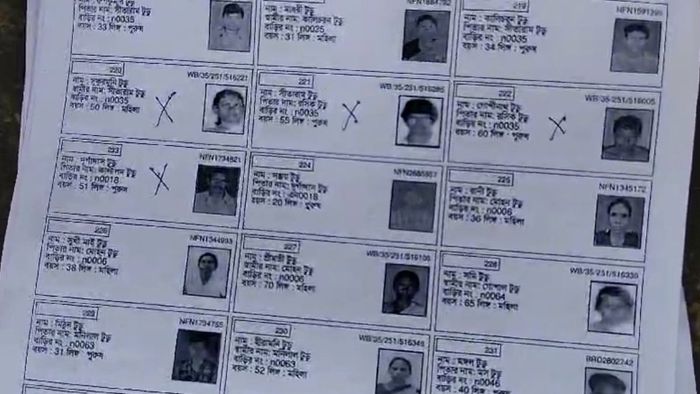 পিতার নাম: সীতারাম টুডু
বাড়ির নং : n0035
বয়স : 33 লিঙ্গ : পুরুষ
নাম : মালতী টুডু
স্বামীর নাম: কালিচরন টুডু
বাড়ির নং : n0025
বয়স : 31 লিঙ্গ : মহিলা
219
NFN1591395
নাম : কালিচরন টুডু
পিতার নাম: সীতারাম টুডু
বাড়ির নং : n0035
বয়স : 34 লিঙ্গ : পুরুষ
220
WB/35/251/516221
টুডু
স্বামীর নাম: সীতারাম টুডু
বাড়ির নং : n0035
বয়স : 50 লিঙ্গ : মহিলা
221
WB/35/251/516285
নাম : সীতারাম টুডু
পিতার নাম: রসিক টুডু
বাড়ির নং : n0035
বয়স : 55 লিঙ্গ : পুরুষ
222
WB/35/251/516005
নাম : গোপীনাথ টুডু
পিতার নাম: রসিক টুডু
বাড়ির নং : n0035
বয়স : 60 লিঙ্গ : পুরুষ
223
NFN1734821
নাম : দূর্গাদাস টুডু
পিতার নাম: টুডু
বাড়ির নং : n0018
বয়স : 51 লিঙ্গ : পুরুষ
224
নাম : সঞ্জয় টুডু
পিতার নাম: দূর্গাদাস টুডু
বাড়ির নং : এন0018
বয়স : 20 লিঙ্গ : পুরুষ
225
NFN1345172
নাম : রানী টুডু
পিতার নাম: মোহন টুডু
বাড়ির নং : n0006
বয়স : 36 লিঙ্গ : মহিলা
226
NFN1344993
নাম : সুখী মাই টুডু
পিতার নাম: মোহন টুডু
বাড়ির নং : n0006
বয়স : 38 লিঙ্গ : মহিলা
227
WB/35/251/516108
নাম : শ্রীমতী টুডু
স্বামীর নাম: মোহন টুডু
বাড়ির নং : n0006
বয়স : 70 লিঙ্গ : মহিলা
228
WB/35/251/516330
নাম : সমি টুডু
স্বামীর নাম: গোপাল টুডু
বাড়ির নং : n0064
বয়স : 65 লিঙ্গ : মহিলা
229
NFN1734755
নাম : মিঠুন টুডু
পিতার নাম: মনিলাল টুডু
বাড়ির নং : n0063
বয়স : 31 লিঙ্গ : পুরুষ
230
WB/35/251/516348
নাম : হীরামনি টুডু
স্বামীর নাম: মনিলাল টুডু
বাড়ির নং : n0063
বয়স : 52 লিঙ্গ : মহিলা
231
BRO2802242
নাম : মঙ্গল টুডু
পিতার নাম: টুডু
বাড়ির নং : n0046
বয়স : 40 লিঙ্গ : পুরুষ